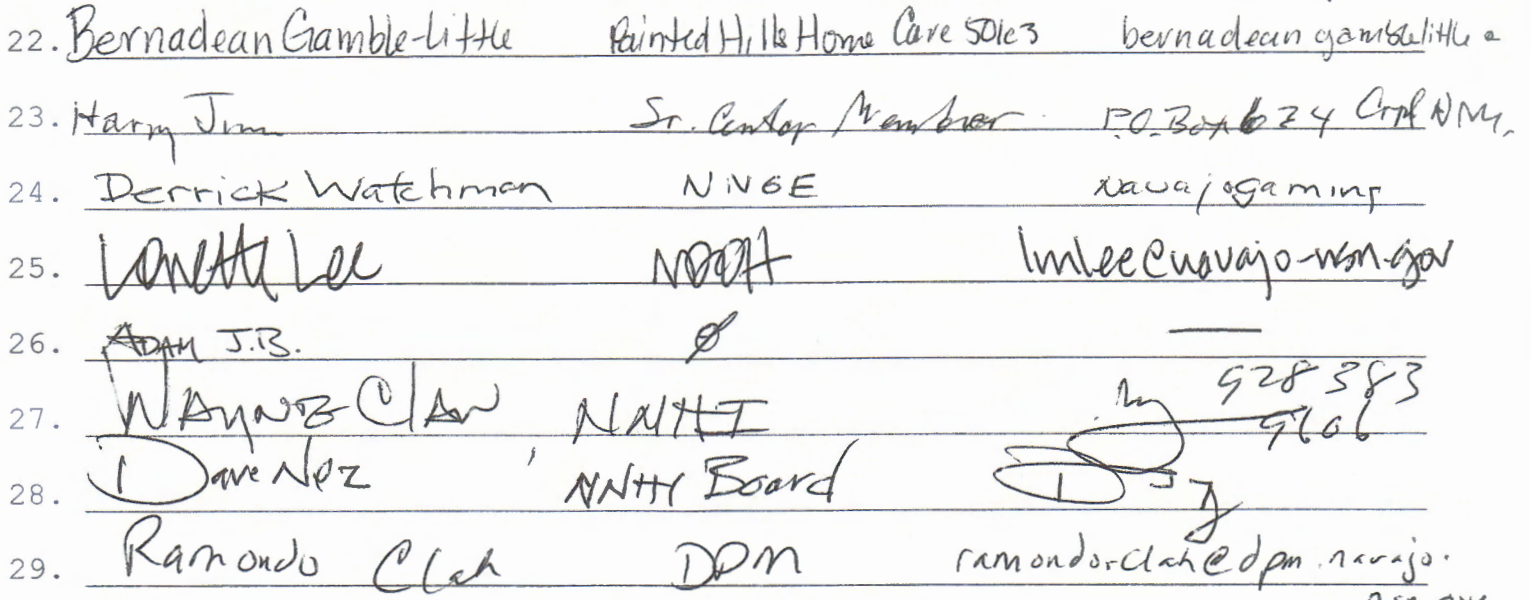 22. Bernadean Gamble-Little Painted Hills Home Care 501c3 bernadean gamblelittle@
23. Harry Jim Sr. Center Member P.O. Box 624 Crpt NM.
24. Derrick Watchman NNGE navajogaming
25. Lee NDOH lmlee@navajo-nsn.gov
26. ADAM J.B. Ø —
27. WAYNE Claw NNHI 928 383
9606
28. Dave Nez NNHI Board
29. Ramondo Clah DPM ramondo.clah@dpm.navajo.